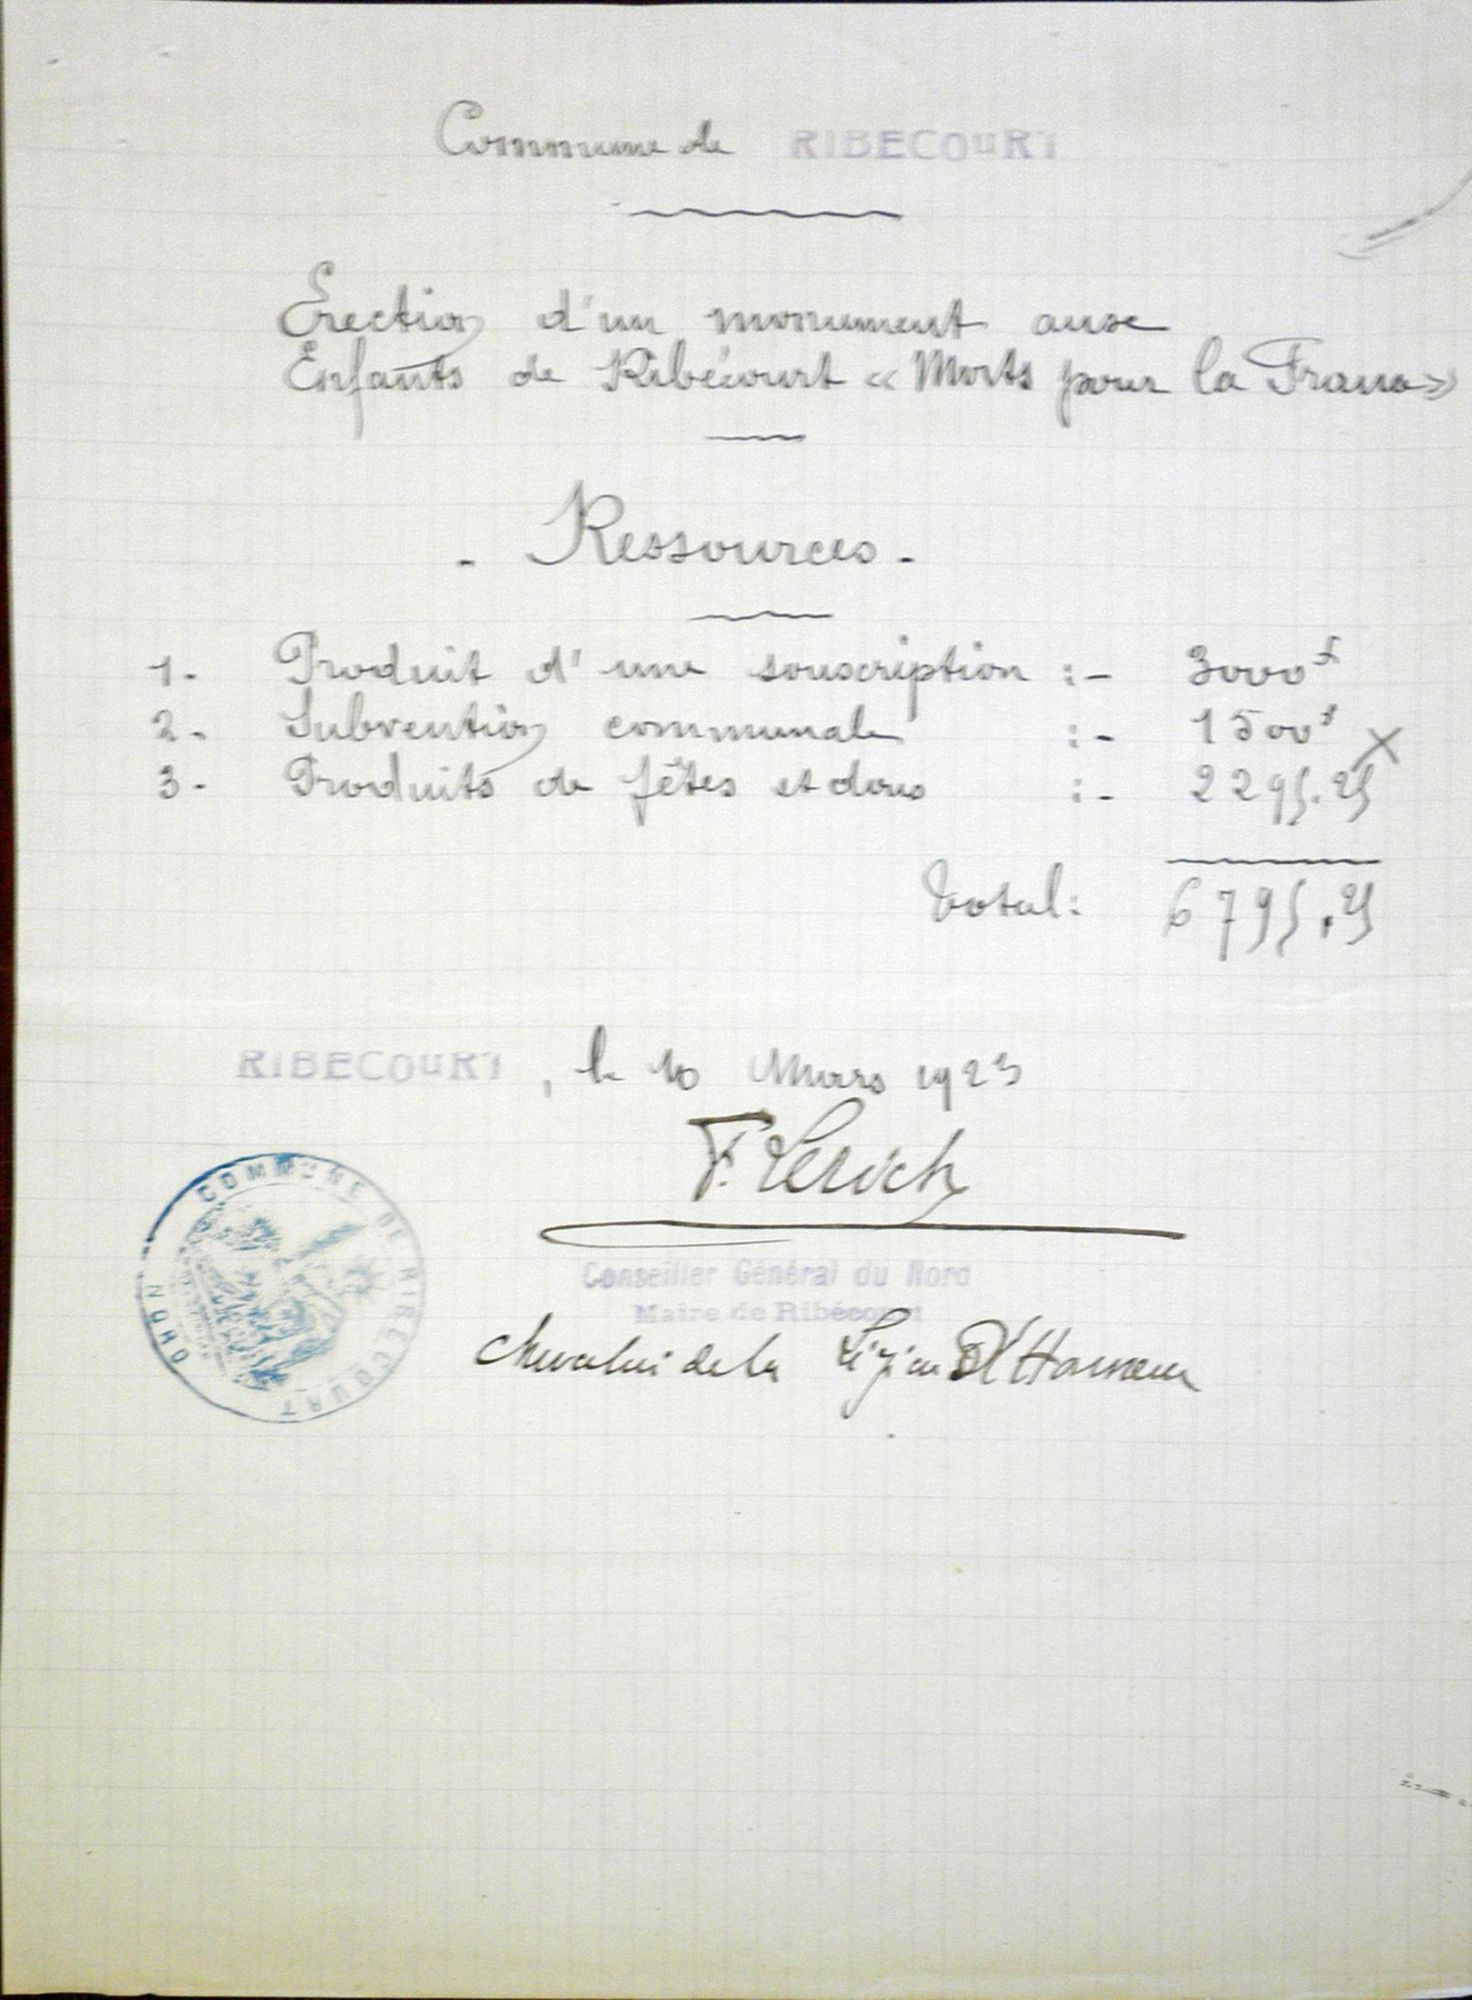 Commune de RIBECOURT
Erection d'un monument aux
Enfants de Ribécourt « Morts pour la France »
- Ressources -
1. Produit d'une souscription :- 3000f
2. Subvention communale :- 1500f
3. Produits de fêtes et dons :- 2295.25
Total: 6795,25
RIBECOURT, le 10 Mars 1923
COMMUNE DE RIBECOURT
NORD
Conseiller Général du Nord
Maire de Ribécourt
Chevalier de la Légion D'Honneur